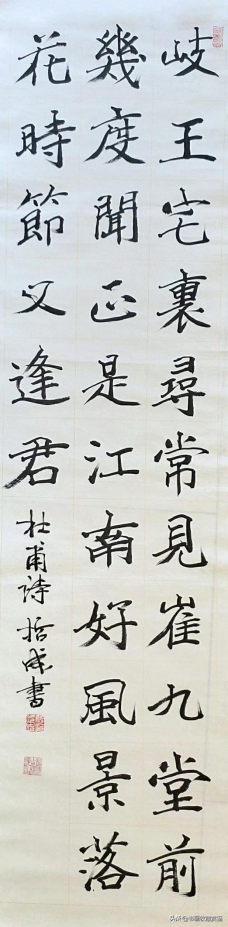 岐王宅裏尋常見崔九堂前
幾度聞正是江南好風景落
花時節又逢君
杜甫詩哲成書